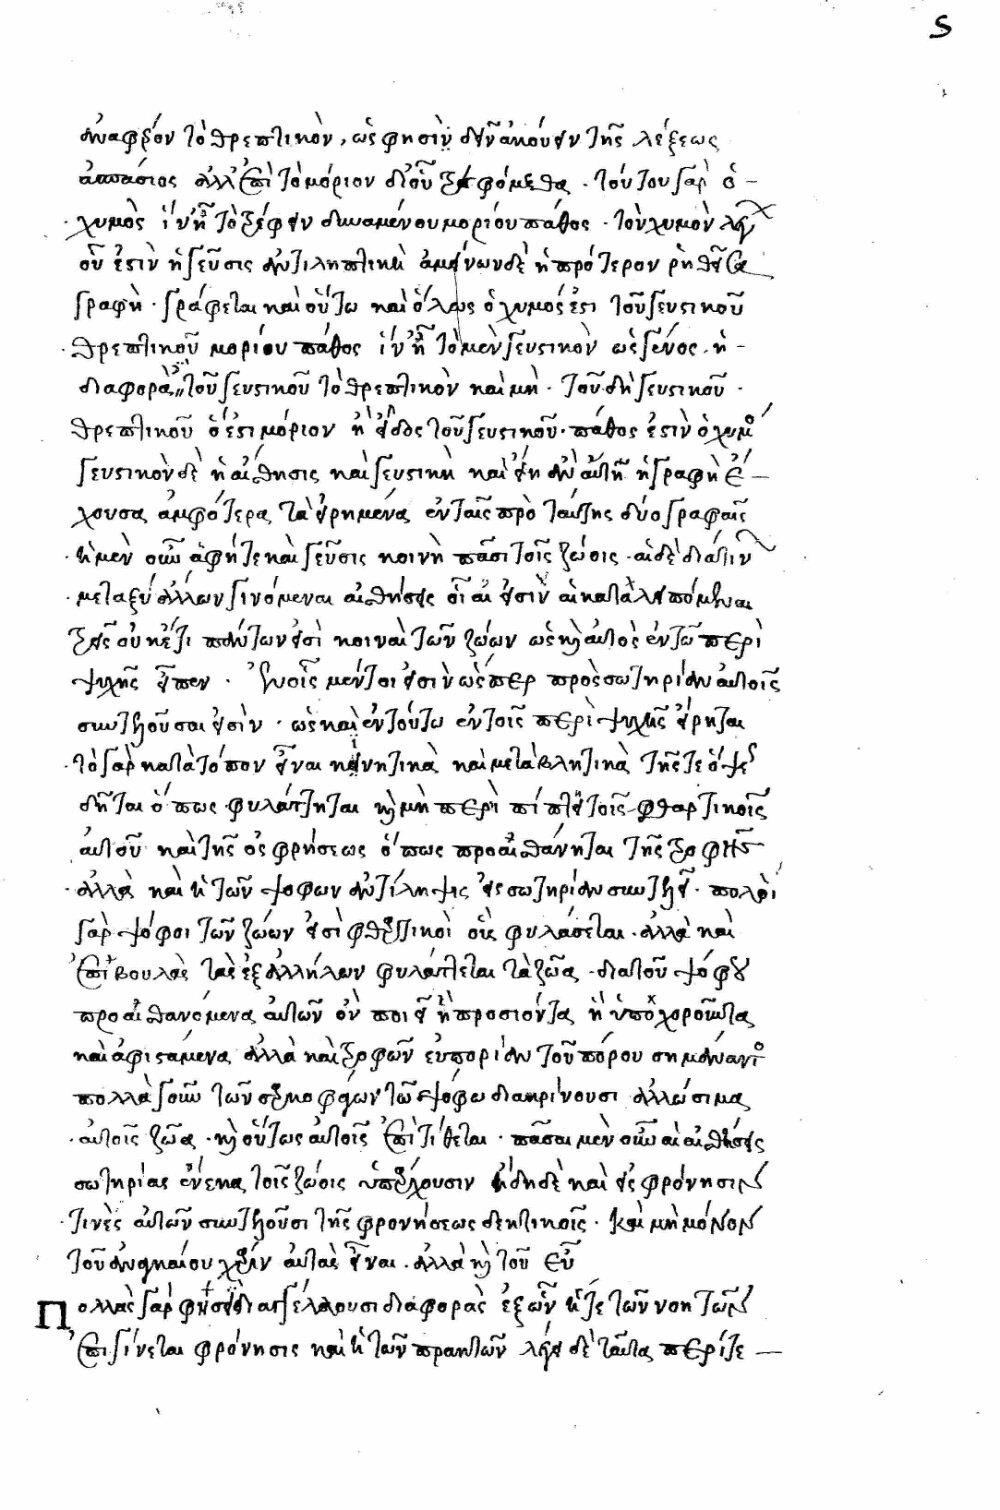 ἀναφέρον τὸ θρεπτικὸν, ὡς φησὶν δεῖν ἀκούειν τῆς λέξεως
ἀσπάσιος ἀλλ' ἐπὶ τὸ μόριον δι' οὗ τρεφόμεθα · τούτου γὰρ ὁ
χυμὸς ἵν' ᾖ τὸ τρέφειν δυναμένου μορίου πάθος · τὸν χυμὸν λέγει
οὗ ἐστὶν ἡ γεῦσις ἀντιληπτικὴ ἀμείνων δὲ ἡ πρότερον ῥηθεῖσα
γραφὴ · γράφεται καὶ οὕτω καὶ ὅλως ὁ χυμός ἐστι τοῦ γευστικοῦ
θρεπτικοῦ μορίου πάθος ἵν' ᾖ τὸ μὲν γευστικὸν ὡς γένος · ἡ
διαφορὰ τοῦ γευστικοῦ τὸ θρεπτικὸν καὶ μὴ · τοῦ δὴ γευστικοῦ ·
θρεπτικοῦ ὅ ἐστι μόριον ἢ εἶδος τοῦ γευστικοῦ · πάθος ἐστὶν ὁ χυμός
γευστικὸν δὲ ἡ αἴσθησις καὶ γευστικὴ καὶ εἴη ἂν αὕτη ἡ γραφὴ ἔ
χουσα ἀμφότερα τὰ εἰρημένα ἐν ταῖς πρὸ ταύτης δύο γραφαῖς
ἡ μὲν οὖν ἁφή τε καὶ γεῦσις κοινὴ πᾶσι τοῖς ζώοις · αἱ δὲ διά τιν
μεταξὺ ἄλλων γινόμεναι αἰσθήσεις αἵ εἰσιν αἱ καταλειπόμεναι
τρεῖς οὐκέτι πάντων εἰσὶ κοιναὶ τῶν ζώων ὡς καὶ αὐτὸς ἐν τῶ περὶ
ψυχῆς εἶπεν · οἷς μέντοι εἰσὶν ὥσπερ πρὸς σωτηρίαν αὐτοῖς
συντελοῦσαι εἰσὶν · ὡς καὶ ἐν τούτω ἐν τοῖς περὶ ψυχῆς εἴρηται
τὸ γὰρ κατὰ τόπον εἶναι κινητικὰ καὶ μεταβλητικὰ τῆς τε ὄψεως
δεῖται ὅπως φυλάττηται καὶ μὴ περιπίπτει τοῖς φθαρτικοῖς
αὐτοῦ καὶ τῆς ὀσφρήσεως ὅπως προαισθάνηται τῆς τροφῆς
ἀλλὰ καὶ ἡ τῶν ψόφων ἀντίληψις εἰς σωτηρίαν συντελεῖ · πολλοὶ
γὰρ ψόφοι τῶν ζώων εἰσὶ φθαρτικοὶ οὓς φυλάσεται · ἀλλὰ καὶ
ἐπιβουλὰς τὰς ἐξ ἀλλήλων φυλάττεται τὰ ζῶα · διὰ τοῦ ψόφου
προαισθανόμενα αὐτῶν ὃν ποιεῖ ἢ προσιόντα ἢ ὑποχοροῦντα
καὶ ἀφιστάμενα ἀλλὰ καὶ τροφῶν εὐπορίαν τοῦ πόρου σημαίνοντος
πολλὰ γοῦν τῶν σαρκοφάγων τῶ ψόφω διακρίνουσι ἁλώσιμα
αὐτοῖς ζῶα · καὶ οὕτως αὐτοῖς ἐπιτίθεται · πᾶσαι μὲν οὖν αἱ αἰσθήσεις
σωτηρίας ἕνεκα τοῖς ζώοις ὑπάρχουσιν ἤδη δὲ καὶ εἰς φρόνησιν
τινὲς αὐτῶν συντελοῦσι τῆς φρονήσεως δεκτικοῖς · καὶ μὴ μόνον
τοῦ ἀναγκαίου χάριν αὐτὰς εἶναι · ἀλλὰ καὶ τοῦ εὖ
πολλὰς γάρ φησὶ διαγγέλλουσι διαφορὰς ἐξ ὧν ἥ τε τῶν νοητῶν
ἐπιγίνεται φρόνησις καὶ ἡ τῶν πρακτῶν λέγει δὲ ταῦτα περί τε